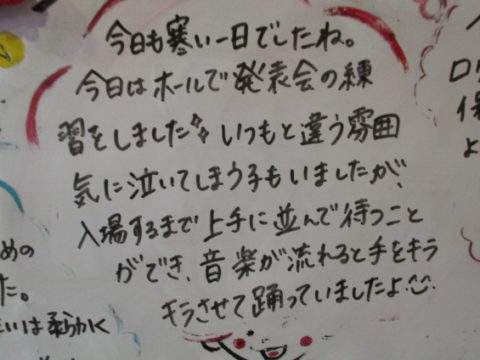 今日も寒い一日でしたね。
今日はホールで発表会の練
習をしました いつもと違う雰囲
気に泣いてしまう子もいましたが、
入場するまで上手に並んで待つこと
ができ、音楽が流れると手をキラ
キラさせて踊っていましたよ
めの
た。
いは柔らかく
ロ
保
よ